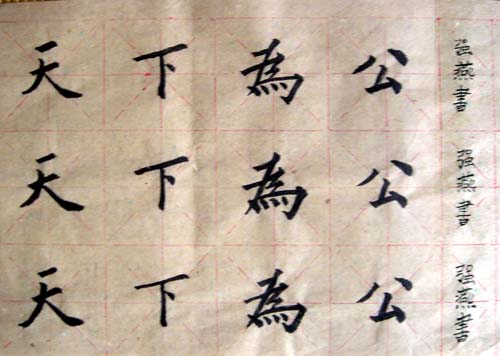 天下為公
强燕書
天下為公
强燕書
天下為公
强燕書